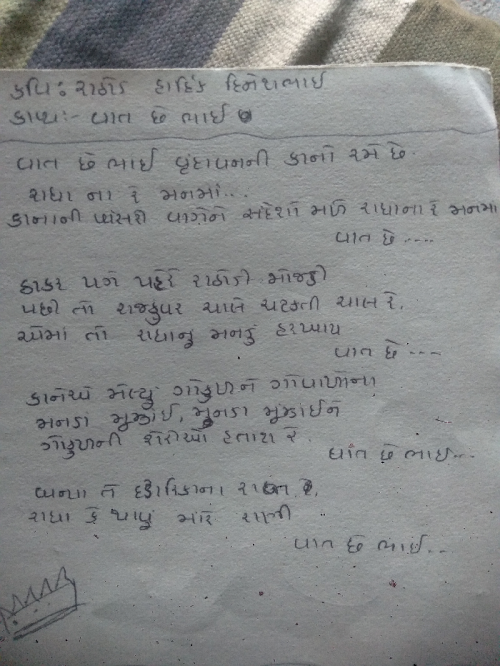 કવિ: રાઠોડ હાર્દિક દિનેશભાઈ
કાવ્ય:- વાત છે ભાઈ
વાત છે ભાઈ વૃંદાવનની કાનો રમે છે.
રાધા ના રે મનમાં...
કાનાની વાંસળી વાગેને સંદેશો મળે રાધાના રે મનમા
વાત છે....
ઠાકર પગે પહેરે રાઠોડી મોજડી
પછી તો રાજકુવર ચાલે ચટકતી ચાલ રે.
એમાં તો રાધાનુ મનડુ હરખાય
વાત છે....
કાનેએ મેલ્યું ગોકુળને ગોવાળોના
મનડાં મૂંઝાઈ, મુનડા મૂંઝાઈને
ગોકુળની શેરીઓ
વાત છે ભાઈ...
બન્યા તે દ્વારિકાના રે.
રાધા કે થાવું મારે રાણી
વાત છે ભાઈ..